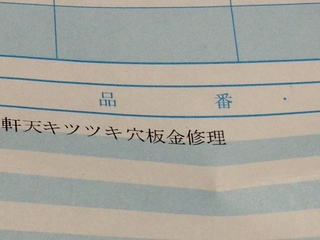 品番・
軒天キツツキ穴板金修理